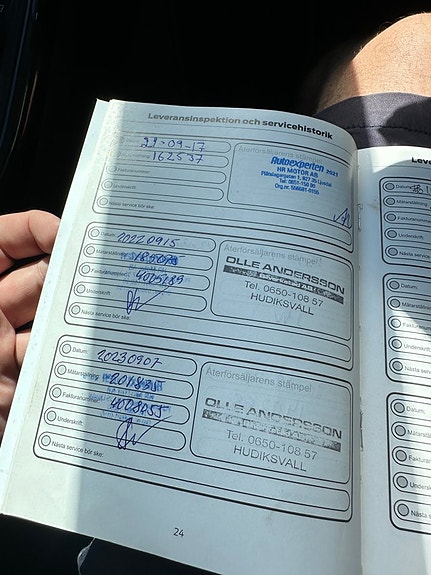 Leveransinspektion och servicehistorik
21-09-17
162537
Fakturanummer:
Underskrift:
Nästa service bör ske:
Återförsäljarens stämpel:
Autoexperten 2021
HR MOTOR AB
Tel: 0651-150 90
Datum: 20220915
Mätarställning:
Fakturanummer: 4005789
Underskrift:
Nästa service bör ske:
Återförsäljarens stämpel:
OLLE ANDERSSON
Tel. 0650-108 57
HUDIKSVALL
Datum: 20230907
Mätarställning:
Fakturanummer: 4008055
Underskrift:
Nästa service bör ske:
Återförsäljarens stämpel:
OLLE ANDERSSON
Tel. 0650-108 57
HUDIKSVALL
24
Leve
Datum:
Mätarställning:
Fakturanummer
Underskrift:
Nästa service
Datum:
Mätarställ
Fakturanum
Underskrift
Nästa servi
Datum:
Mätarställ
Fakturan
Undersk
Nästa s